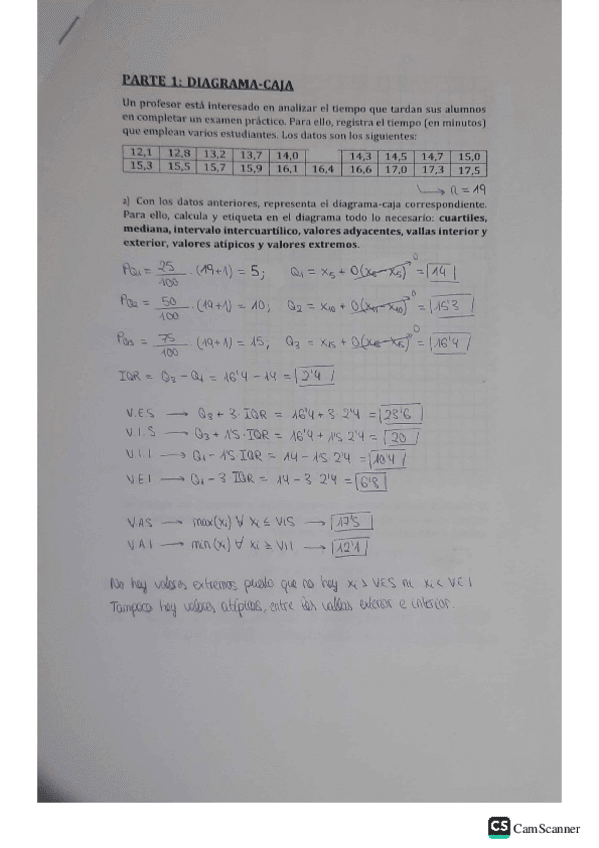 PARTE 1: DIAGRAMA-CAJA
Un profesor está interesado en analizar el tiempo que tardan sus alumnos
en completar un examen práctico. Para ello, registra el tiempo (en minutos)
que emplean varios estudiantes. Los datos son los siguientes:
12,1 12,8 13,2 13,7 14,0 14,3 14,5 14,7 15,0
15,3 15,5 15,7 15,9 16,1 16,4 16,6 17,0 17,3 17,5
→ n = 19
a) Con los datos anteriores, representa el diagrama-caja correspondiente.
Para ello, calcula y etiqueta en el diagrama todo lo necesario: cuartiles,
mediana, intervalo intercuartílico, valores adyacentes, vallas interior y
exterior, valores atípicos y valores extremos.
PQ1 = 25/100 · (19+1) = 5; Q1 = x5 + 0(x6 - x5) = 14
PQ2 = 50/100 · (19+1) = 10; Q2 = x10 + 0(x11 - x10) = 15'3
PQ3 = 75/100 · (19+1) = 15; Q3 = x15 + 0(x16 - x15) = 16'4
IQR = Q3 - Q1 = 16'4 - 14 = 2'4
V.E.S → Q3 + 3 · IQR = 16'4 + 3 · 2'4 = 23'6
V.I.S → Q3 + 1'5 · IQR = 16'4 + 1'5 · 2'4 = 20
V.I.I → Q1 - 1'5 IQR = 14 - 1'5 · 2'4 = 10'4
V.E.I → Q1 - 3 IQR = 14 - 3 · 2'4 = 6'8
V.A.S → max(xi) ∀ xi ≤ VIS → 17'5
V.A.I → min(xi) ∀ xi ≥ VII → 12'1
No hay valores extremos puesto que no hay xi > VES ni xi < VEI
Tampoco hay valores atípicos, entre las vallas exterior e interior.
CS CamScanner